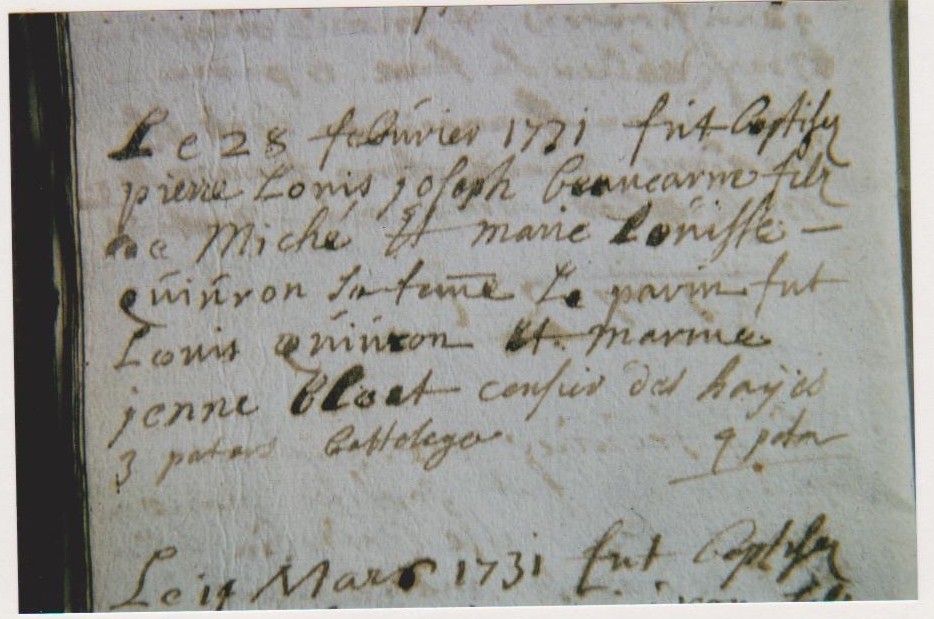 Le 28 feburier 1731 fut baptisez
pierre Louis joseph beaucarne filz
de Miché Et marie Loüisse –
quiúron sa fame Le parin fut
Louis quiúron Et. marine
jenne Bloet censier des hayës
3 patars 9 patar
Le 14 Mars 1731 fut baptisez